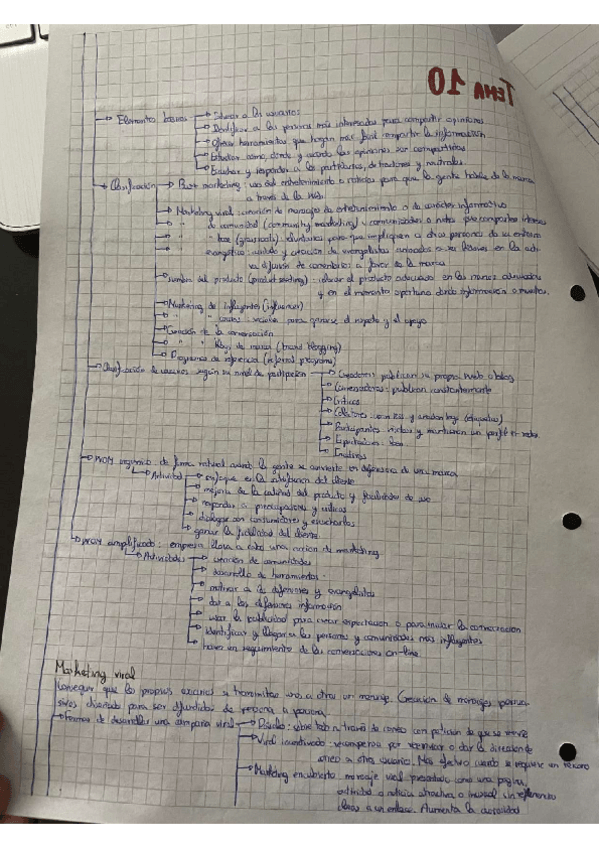 TEMA 10
Elementos básicos → Educar a los usuarios
→ Identificar a las personas más interesadas para compartir opiniones
→ Ofrecer herramientas que hagan más fácil compartir la información
→ Estudiar cómo, dónde y cuándo las opiniones son compartidas
→ Escuchar y responder a los partidarios, detractores y neutrales
Clasificación → Buzz marketing: uso del entretenimiento o noticias para que la gente hable de la marca
a través de la Web
→ Marketing viral: creación de mensajes de entretenimiento o de carácter informativo
→ " de comunidad (community marketing): comunidades o nichos para compartir intereses
→ " " base (grassroots): voluntarios para que impliquen a otras personas de su entorno
→ " evangélico: cuidado y creación de evangelistas a ser líderes en la
difusión de comentarios a favor de la marca
→ Siembra del producto (product seeding): colocar el producto adecuado en las manos adecuadas
y en el momento oportuno dando información o muestras.
→ Marketing de influyentes (influencer)
→ " " causas: sociales para ganarse el respeto y el apoyo
→ Creación de la conversación
→ " " blogs de marca (brand blogging)
→ Programas de referencia (referral programs)
Clasificación de usuarios según su nivel de participación → Creadores: publican su propia Web o blog
→ Conversadores: publican constantemente
→ Críticos
→ Colectores: usan RSS y añaden tags (etiquetas)
→ Participantes: visitan y mantienen un perfil en redes
→ Espectadores: leen
→ Inactivos
WOM orgánico: de forma natural cuando la gente se convierte en defensora de una marca
→ Actividades → enfoque en la satisfacción del cliente
→ mejoría de la calidad del producto y facilidades de uso
→ responder a preocupaciones y críticas
→ dialogar con consumidores y escucharlos
→ ganar la fidelidad del cliente.
WOM amplificado: empresa lleva a cabo una acción de marketing
→ Actividades → creación de comunidades
→ desarrollo de herramientas
→ motivar a los defensores y evangelistas
→ dar a los defensores información
→ usar la publicidad para crear expectación o para iniciar la conversación
→ identificar y llegar a las personas y comunidades más influyentes
→ hacer un seguimiento de las conversaciones on-line.
Marketing viral
Conseguir que los propios usuarios se transmitan unos a otros un mensaje. Creación de mensajes
diseñados para ser difundidos de persona a persona.
→ Formas de desarrollar una campaña viral → Pásalo: sobre todo a través de correo con petición de que se reenvíe
→ Viral incentivado: recompensa por reenviar o dar la dirección de
correo a otro usuario. Más efectivo cuando se requiere un tercero
→ Marketing encubierto: mensaje viral presentado como una página,
actividad o noticia atractiva o inusual sin referencias
claras a un enlace. Aumenta la curiosidad